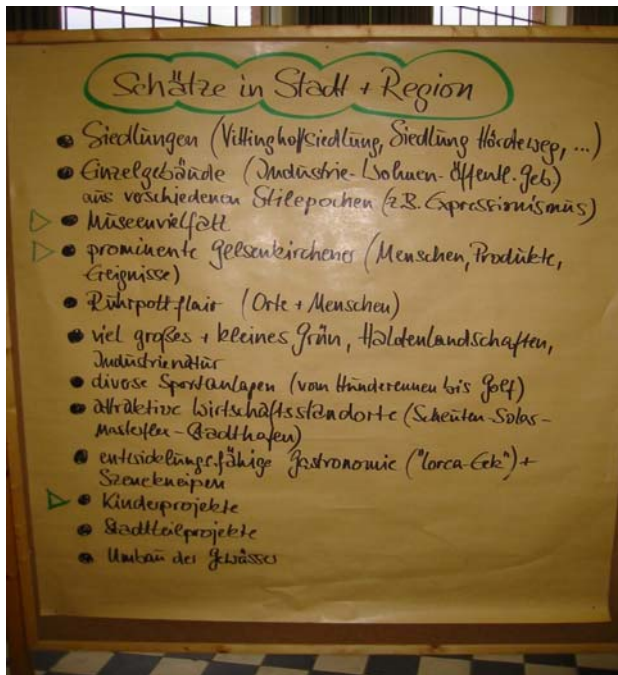 Schätze in Stadt + Region
• Siedlungen (Vittinghoffsiedlung, Siedlung Hördeweg, ...)
• Einzelgebäude (Industrie-Wohnen-öffentl. Geb.)
aus verschiedenen Stilepochen (z.B. Expressionismus)
• Museenvielfalt
• prominente Gelsenkirchener (Menschen, Produkte,
Ereignisse)
• Ruhrpottflair (Orte + Menschen)
• viel großes + kleines Grün, Haldenlandschaften,
Industrienatur
• diverse Sportanlagen (vom Hunderennen bis Golf)
• attraktive Wirtschaftsstandorte (Scheuten-Solar-
Masterflex-Stadthafen)
• entwicklungsfähige Gastronomie ("Lorca-Eck") +
Szenekneipen
• Kinderprojekte
• Stadtteilprojekte
• Umbau der Gewässer